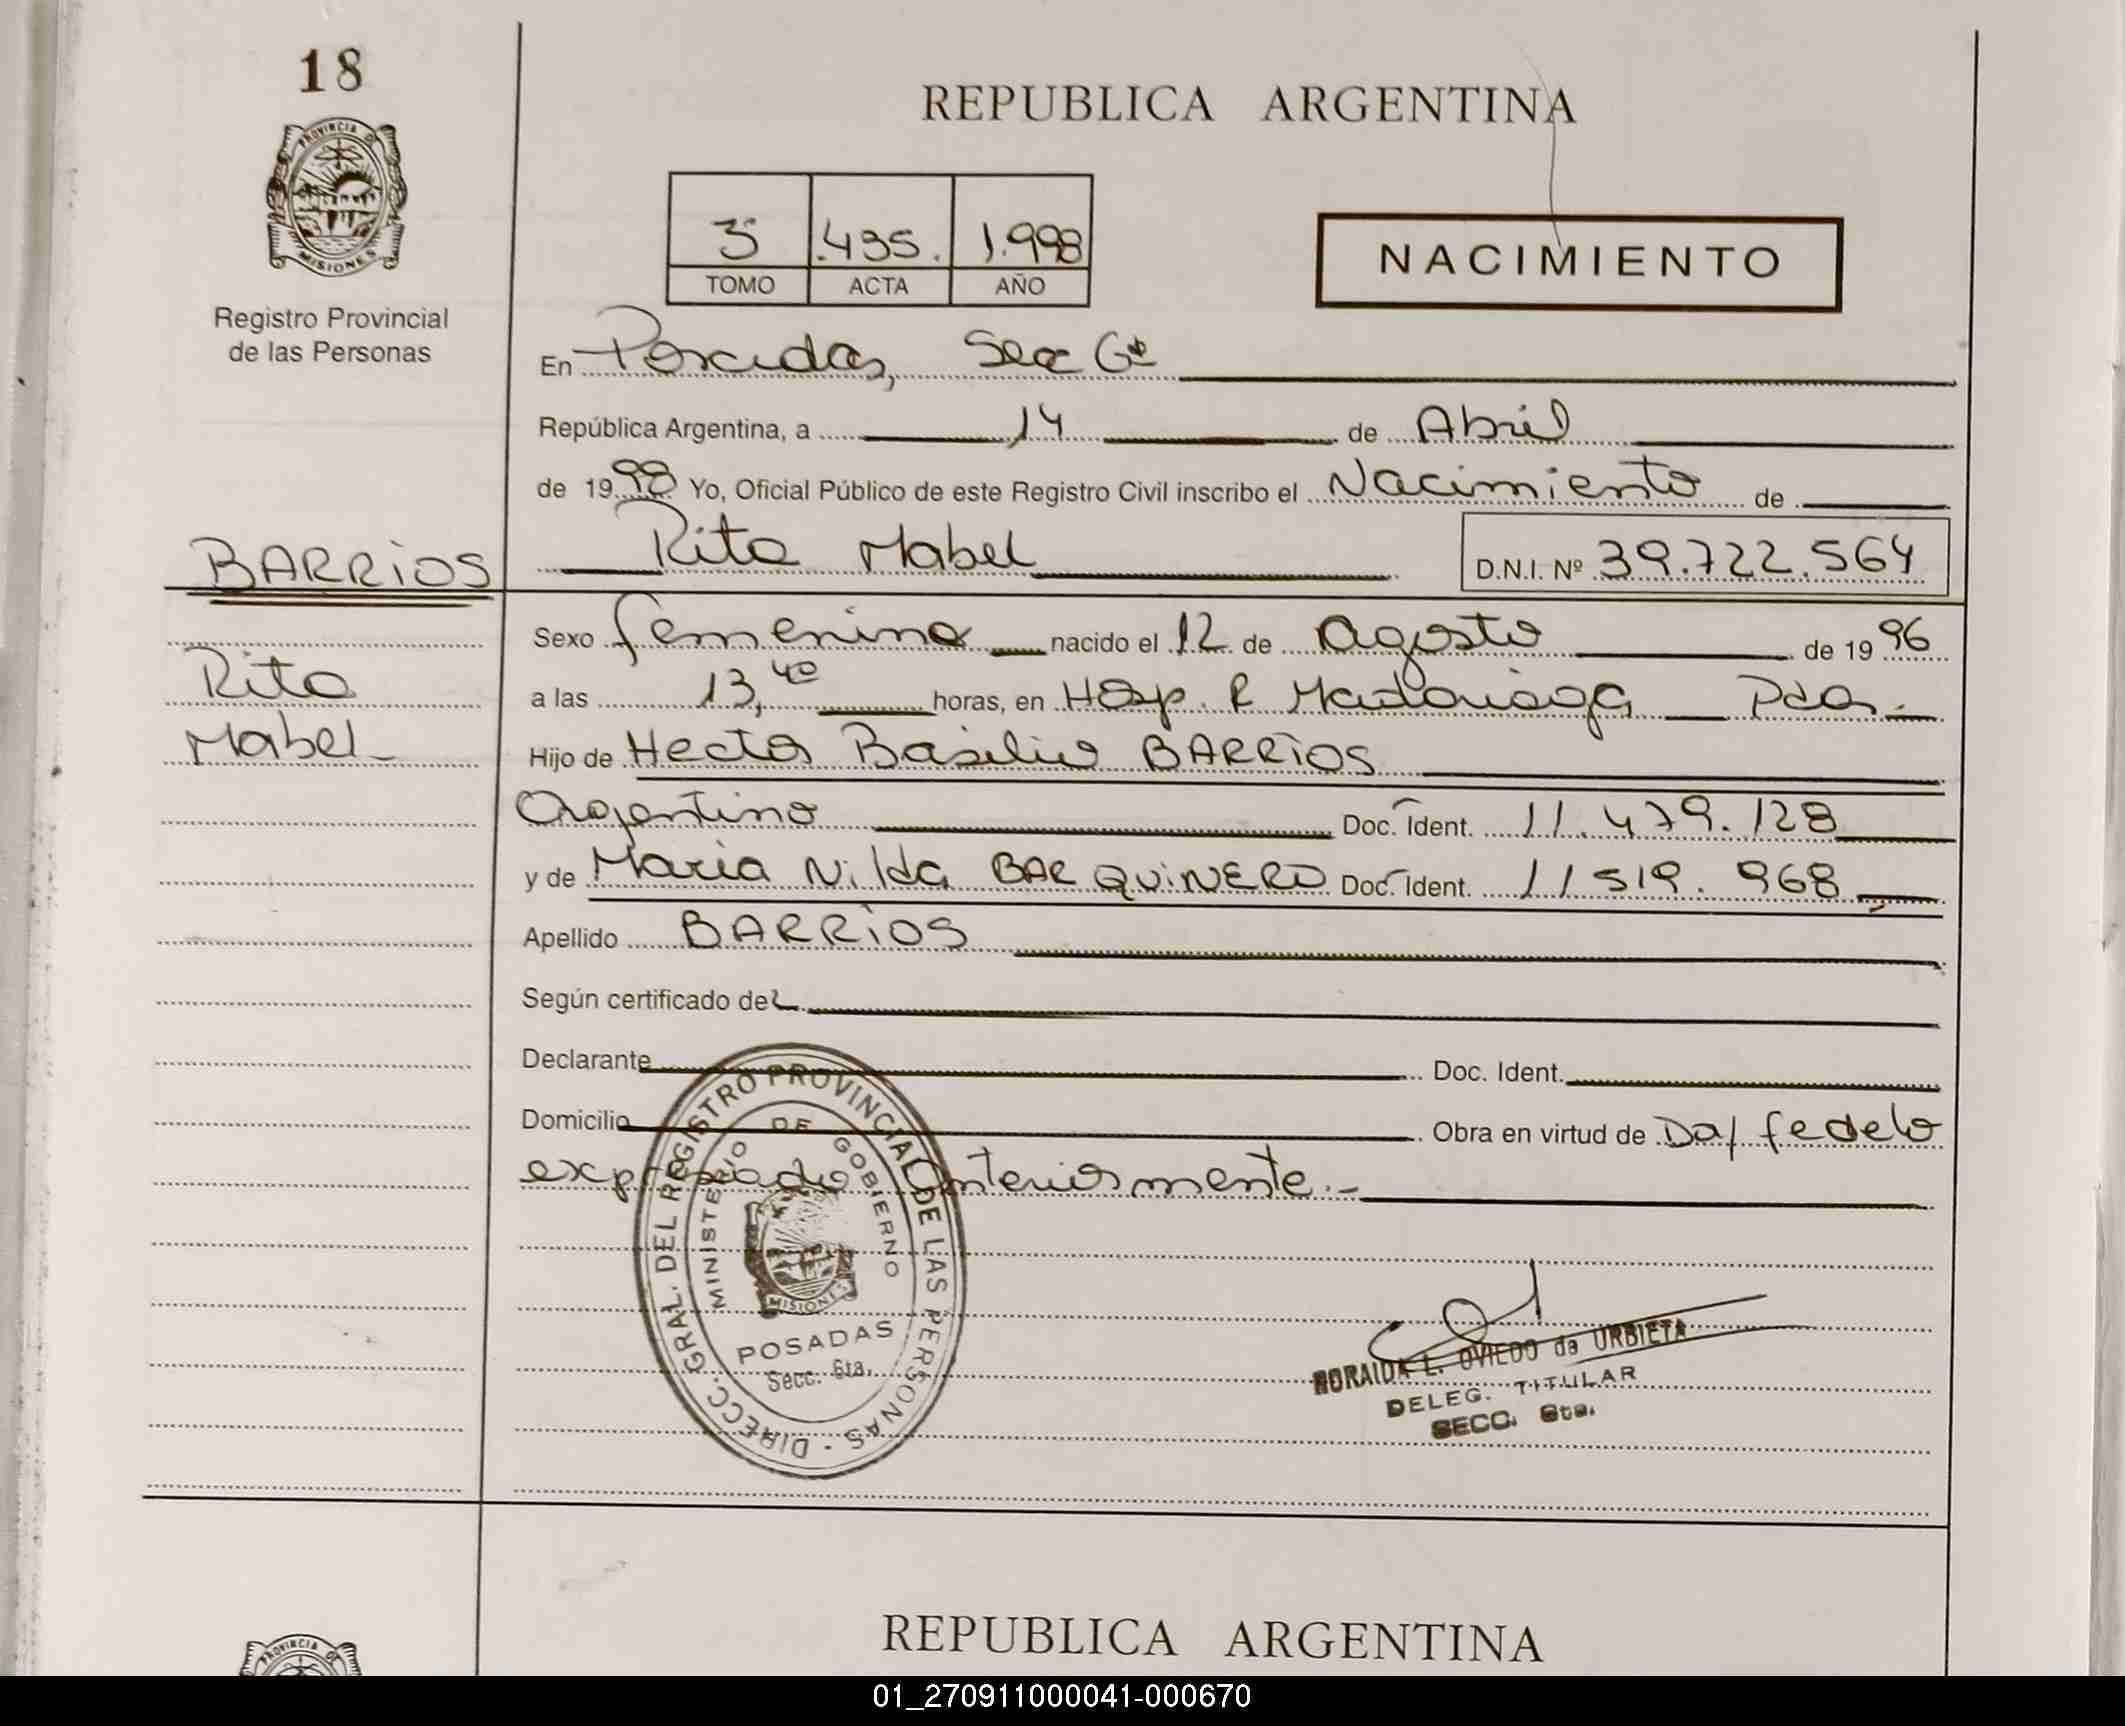 18
PROVINCIA D
MISIONES
Registro Provincial
de las Personas
REPUBLICA ARGENTINA
3 .435. 1.998
TOMO ACTA AÑO
NACIMIENTO
En Posadas, Secc 6ª
República Argentina, a 14 de Abril
de 1998 Yo, Oficial Público de este Registro Civil inscribo el Nacimiento de
BARRIOS
Rita Mabel
D.N.I. Nº 39.722.564
Rita
Mabel
Sexo femenino nacido el 12 de Agosto de 1996
a las 13,40 horas, en Hosp. R Madariaga Pdas.
Hijo de Hector Basilio BARRIOS
Argentino Doc. Ident. 11.479.128
y de Maria Nilda BARQUINERO Doc. Ident. 11519.968
Apellido BARRIOS
Según certificado de
Declarante Doc. Ident.
Domicilio Obra en virtud de Da/ fe de lo
expresado anteriormente.-
DIRECC. GRAL. DEL REGISTRO PROVINCIAL DE LAS PERSONAS -
MINISTERIO DE GOBIERNO
MISIONES
POSADAS
Secc. 6ta.
L. OVIEDO de URBIETA
DELEG. TITULAR
SECC. 6ta.
REPUBLICA ARGENTINA
PROVINCIA
01_270911000041-000670